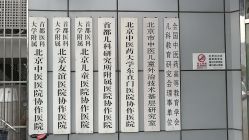 首都医科大学附属
北京中医医院协作医院
首都医科大学附属
北京友谊医院协作医院
首都医科大学附属
北京儿童医院协作医院
首都儿科研究所附属医院协作医院
北京中医药大学东直门医院协作医院
北京市中医儿童外治技术基层研究室
全国中医药高等教育学会
儿科教育研究会儿童